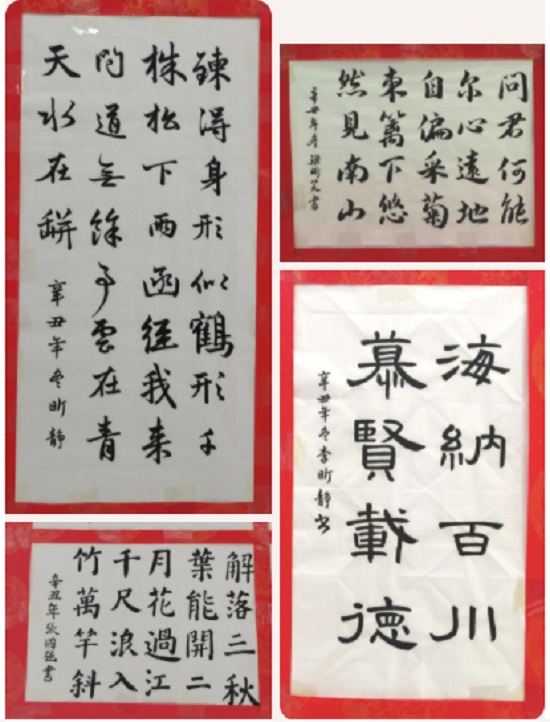 鍊得身形似鶴形千
株松下兩函經我来
問道無餘事雲在青
天水在缾
辛丑年冬昕靜
問君何能
尔心遠地
自偏采菊
東籬下悠
然見南山
辛丑年冬書
海納百川
慕賢載德
辛丑年冬李昕靜书
解落三秋
葉能開二
月花過江
千尺浪入
竹萬竿斜
辛丑年張國強書